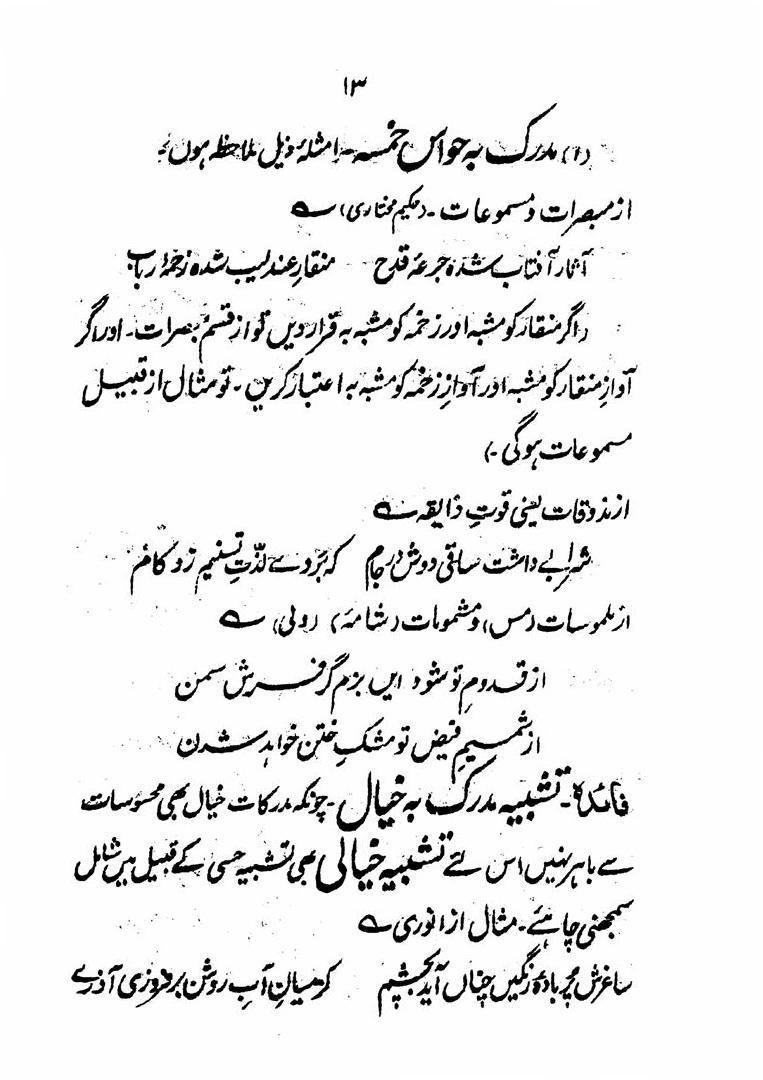 ۱۳
(۱) مدرک بہ حواس خمسہ۔ امثلۂ ذیل ملاحظہ ہوں:۔
از مبصرات و مسموعات۔ (حکیم مختاری) ؎
آثار آفتاب شدہ جرعۂ قدح منقارِ عندلیب شدہ زخمۂ رباب
(اگر منقار کو مشبہ اور زخمہ کو مشبہ بہ قرار دیں تو از قسم مبصرات۔ اور اگر
آوازِ منقار کو مشبہ اور آوازِ زخمہ کو مشبہ بہ اعتبار کریں۔ تو مثال از قبیل
مسموعات ہوگی۔)
از مذوقات یعنی قوتِ ذایقہ ؎
شرابے داشت ساقی دوش در جام کہ بُردے لذّتِ تسنیم زو کام
از ملموسات (مس) و مشمومات (شامہ) (ولی) ؎
از قدومِ تو شود ایں بزم گر فرش سمن
از شمیمِ فیض تو مشکِ ختن خواہد شدن
فائدہ۔ تشبیہ مدرک بہ خیال۔ چونکہ مدرکات خیال بھی محسوسات
سے باہر نہیں اس لئے تشبیہ خیالی بھی تشبیہ حسی کے قبیل میں شامل
سمجھنی چاہئے۔ مثال از انوری ؎
ساغرش پُر بادۂ رنگیں چناں آید بچشم کز میانِ آبِ روشن بر فروزی آذرے